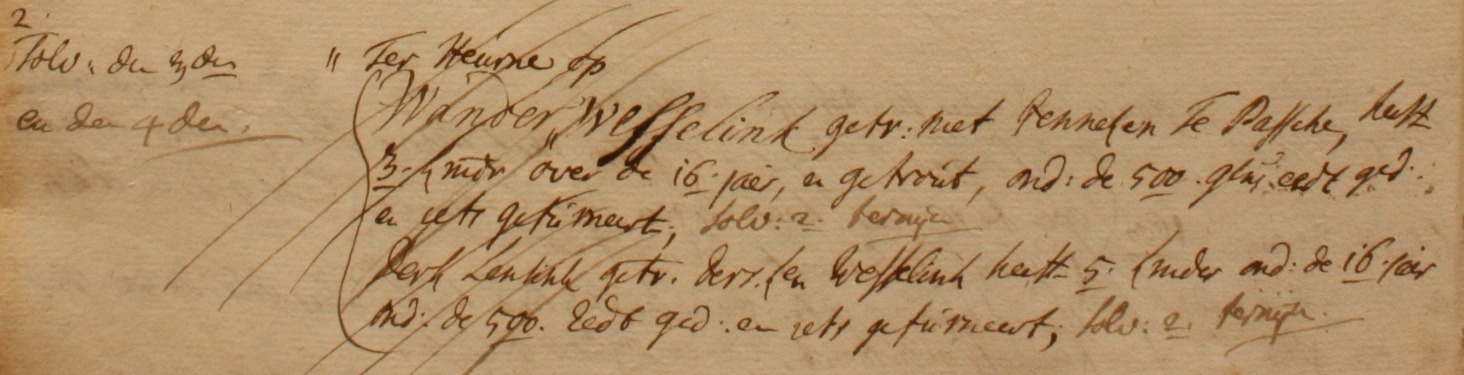 2.
Solv: den 3 den
en den 4 den.
" Ter Heurne op
Wander Wesselink getr: met Fenneken Te Passche, heeft
3. kindr over de 16. jaer, en getrout, ond: de 500. gl: eedt ged:
en iets gefurneert, solv: 2. termijn
Derk Lenkink getr. Ders.ken Wesselink heeft 5. kinder ond: de 16. jaer
ond: de 500. Eedt ged: en iets gefurneert; solv: 2. termijn.